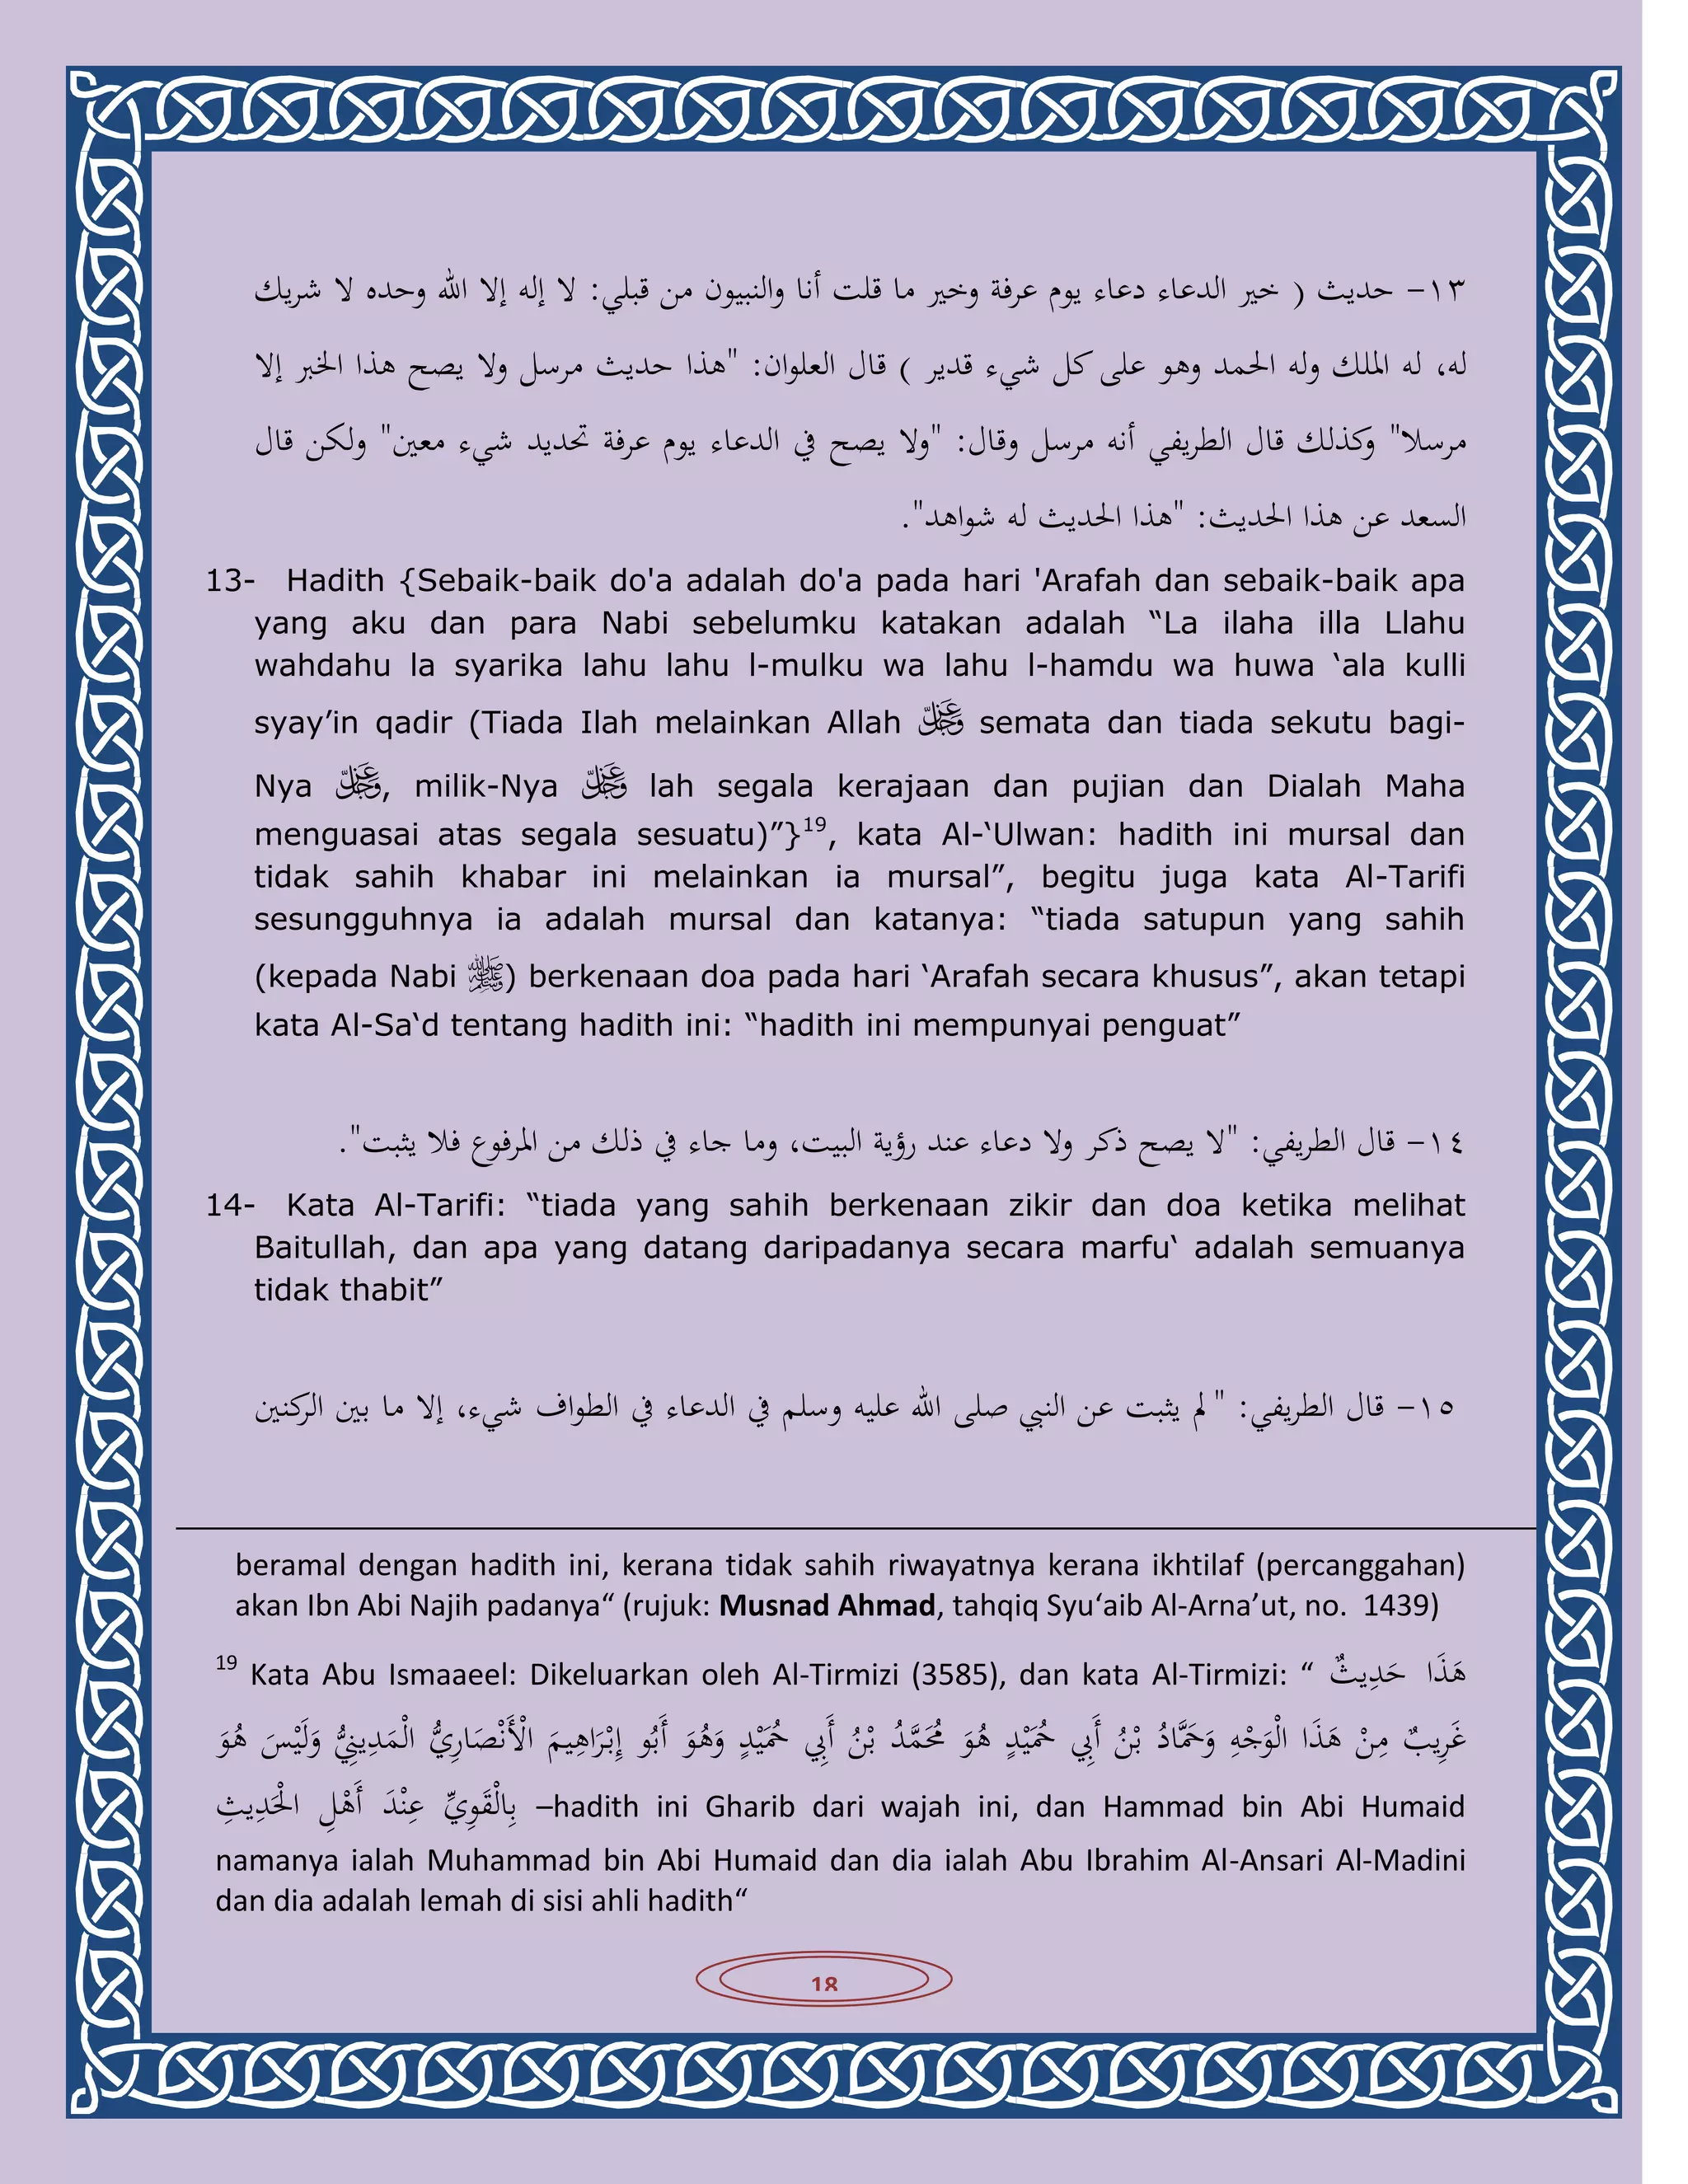 ١٣- حديث ( خير الدعاء دعاء يوم عرفة وخير ما قلت أنا والنبيون من قبلي: لا إله إلا الله وحده لا شريك
له، له الملك وله الحمد وهو على كل شيء قدير ) قال العلوان: "هذا حديث مرسل ولا يصح هذا الخبر إلا
مرسلا" وكذلك قال الطريفي أنه مرسل وقال: "ولا يصح في الدعاء يوم عرفة تحديد شيء معين" ولكن قال
السعد عن هذا الحديث: "هذا الحديث له شواهد".
13- Hadith {Sebaik-baik do'a adalah do'a pada hari 'Arafah dan sebaik-baik apa
yang aku dan para Nabi sebelumku katakan adalah “La ilaha illa Llahu
wahdahu la syarika lahu lahu l-mulku wa lahu l-hamdu wa huwa ‘ala kulli
syay’in qadir (Tiada Ilah melainkan Allah عَزَّ وَجَلَّ semata dan tiada sekutu bagi-
Nya عَزَّ وَجَلَّ, milik-Nya عَزَّ وَجَلَّ lah segala kerajaan dan pujian dan Dialah Maha
menguasai atas segala sesuatu)”}19, kata Al-‘Ulwan: hadith ini mursal dan
tidak sahih khabar ini melainkan ia mursal”, begitu juga kata Al-Tarifi
sesungguhnya ia adalah mursal dan katanya: “tiada satupun yang sahih
(kepada Nabi ﷺ) berkenaan doa pada hari ‘Arafah secara khusus”, akan tetapi
kata Al-Sa‘d tentang hadith ini: “hadith ini mempunyai penguat”
١٤- قال الطريفي: "لا يصح ذكر ولا دعاء عند رؤية البيت، وما جاء في ذلك من المرفوع فلا يثبت".
14- Kata Al-Tarifi: “tiada yang sahih berkenaan zikir dan doa ketika melihat
Baitullah, dan apa yang datang daripadanya secara marfu‘ adalah semuanya
tidak thabit”
١٥- قال الطريفي: " لم يثبت عن النبي صلى الله عليه وسلم في الدعاء في الطواف شيء، إلا ما بين الركنين
beramal dengan hadith ini, kerana tidak sahih riwayatnya kerana ikhtilaf (percanggahan)
akan Ibn Abi Najih padanya“ (rujuk: Musnad Ahmad, tahqiq Syu‘aib Al-Arna’ut, no. 1439)
19 Kata Abu Ismaaeel: Dikeluarkan oleh Al-Tirmizi (3585), dan kata Al-Tirmizi: “ هَذَا حَدِيثٌ
غَرِيبٌ مِنْ هَذَا الْوَجْهِ وَحَمَّادُ بْنُ أَبِي حُمَيْدٍ هُوَ مُحَمَّدُ بْنُ أَبِي حُمَيْدٍ وَهُوَ أَبُو إِبْرَاهِيمَ الْأَنْصَارِيُّ الْمَدِينِيُّ وَلَيْسَ هُوَ
بِالْقَوِيِّ عِنْدَ أَهْلِ الْحَدِيثِ –hadith ini Gharib dari wajah ini, dan Hammad bin Abi Humaid
namanya ialah Muhammad bin Abi Humaid dan dia ialah Abu Ibrahim Al-Ansari Al-Madini
dan dia adalah lemah di sisi ahli hadith“
18